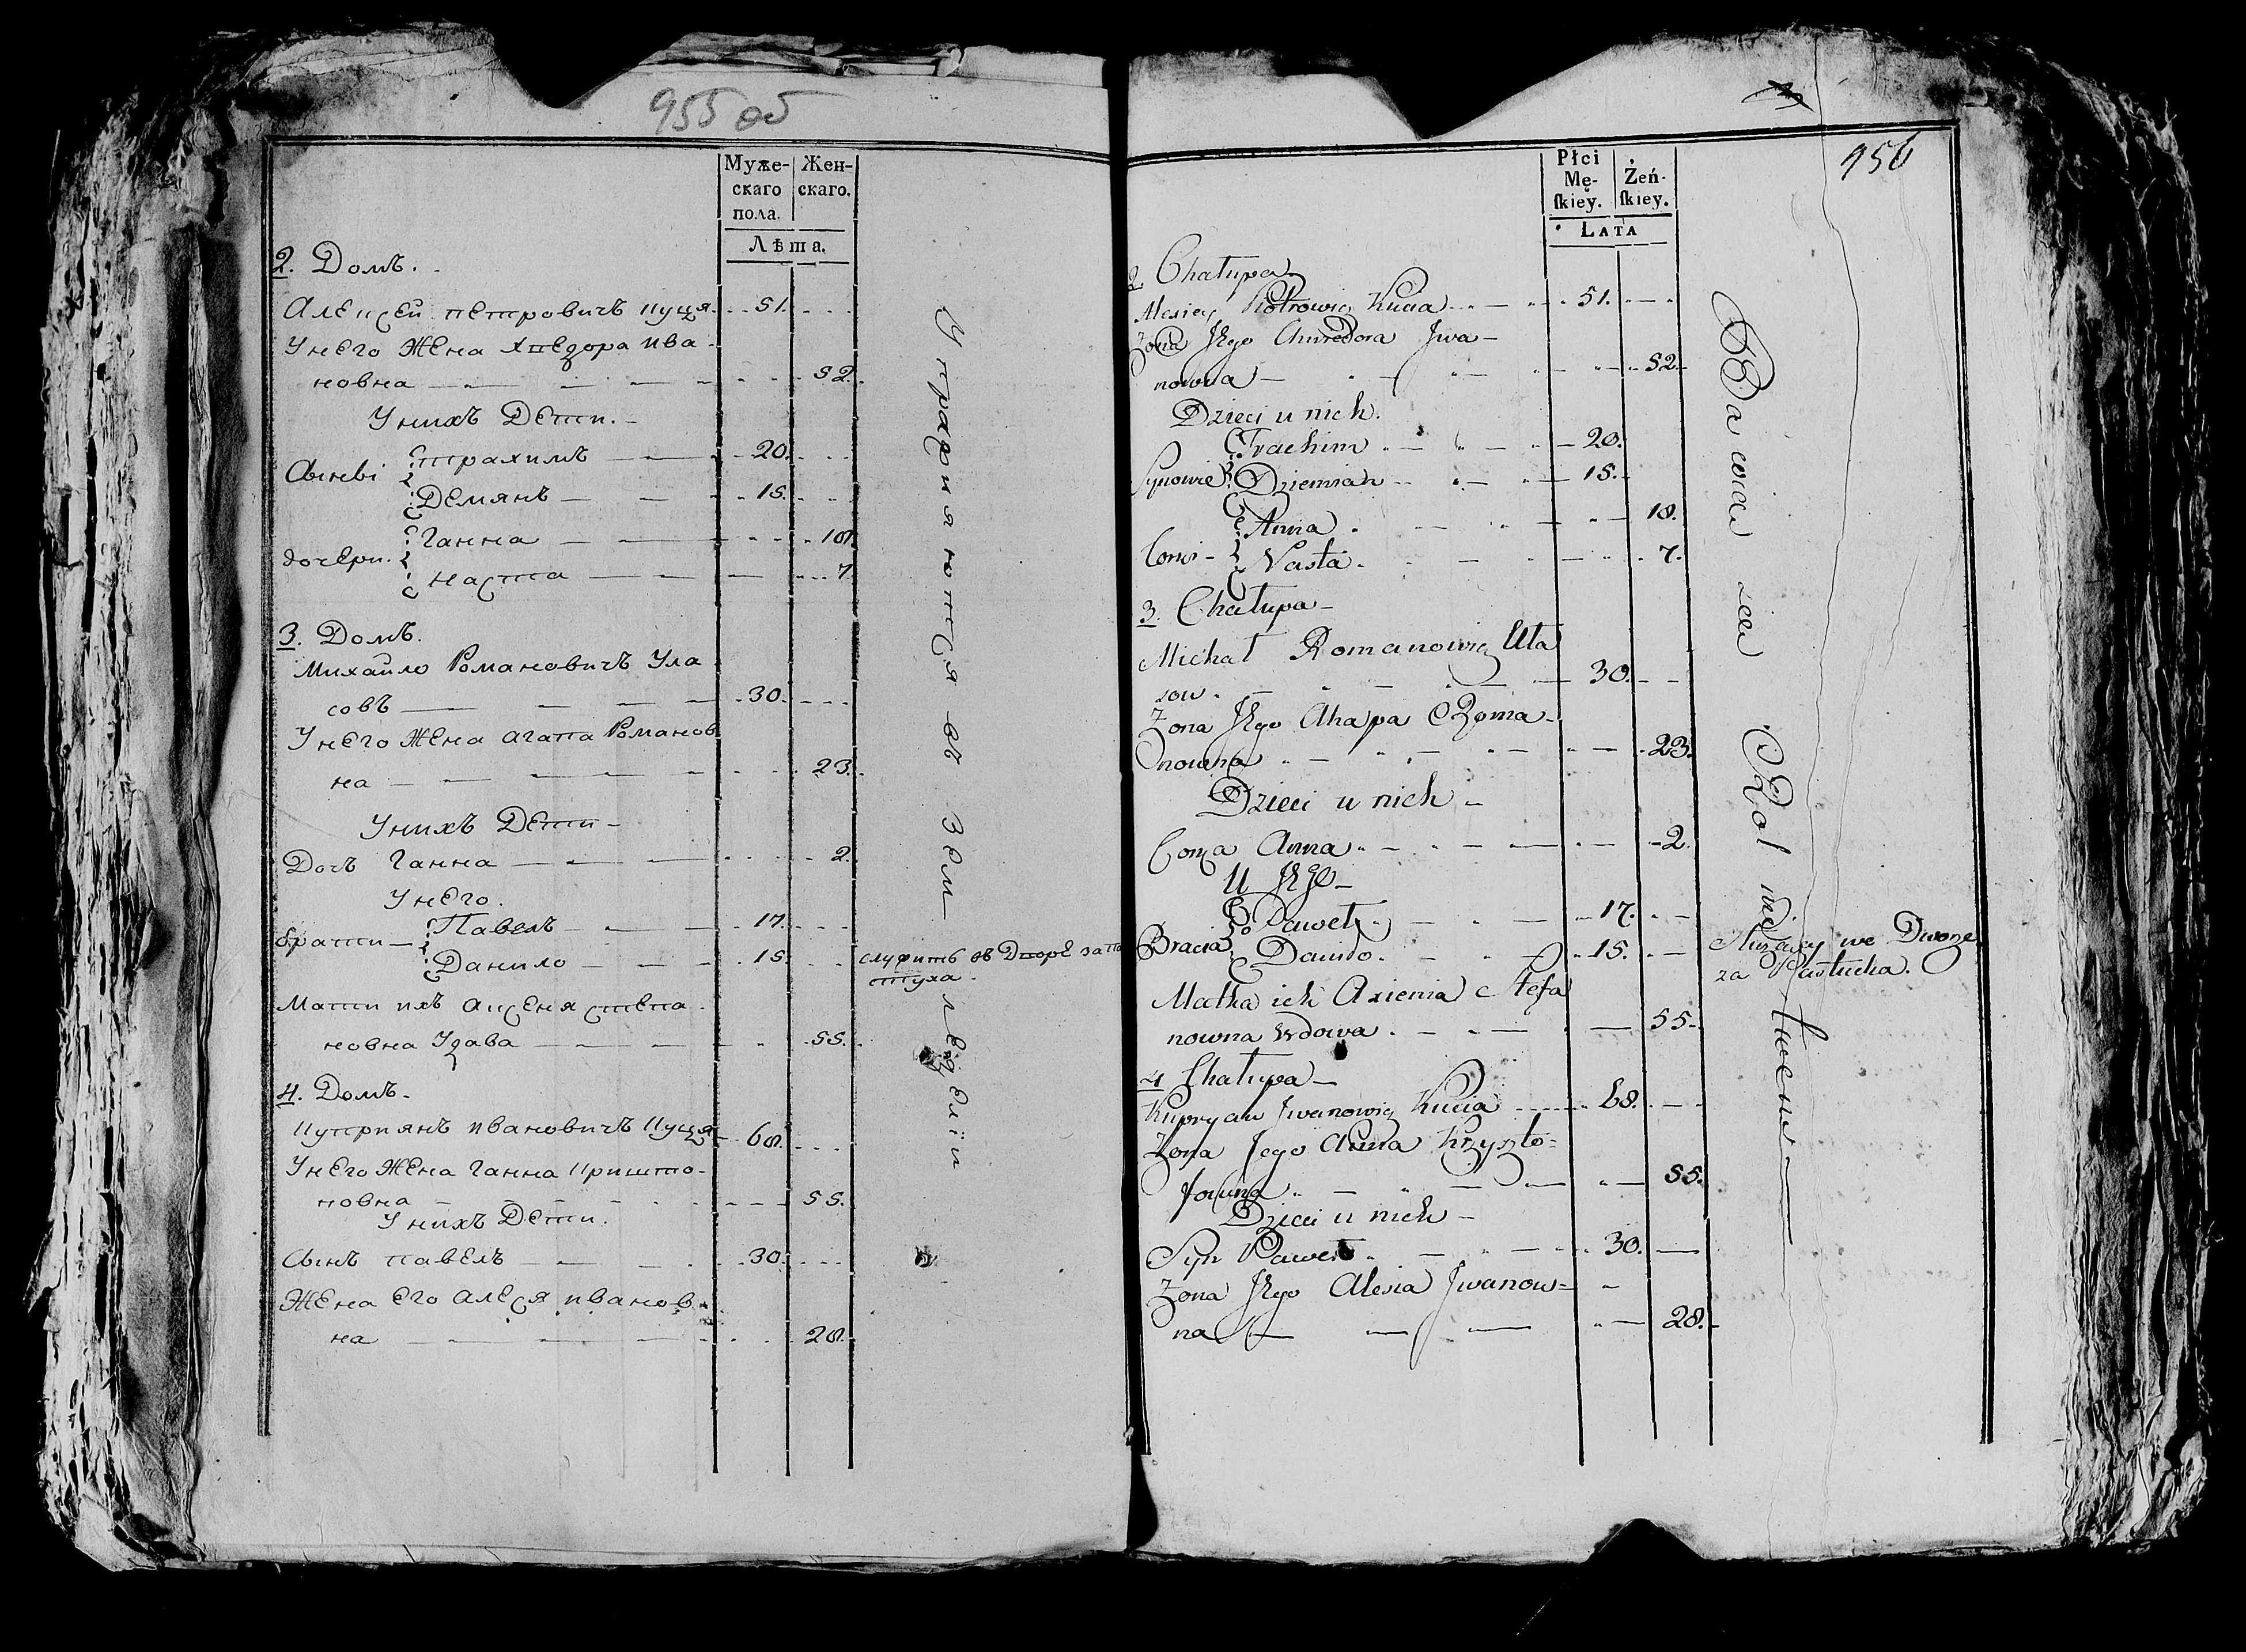 955 об
Муже-
скаго
пола.
Жен-
скаго.
Лѣта.
2. Домъ.
Алексей петровичъ куця. 51.
У него Жена Хведора Ива-
новна 52.
У нихъ Дети.
Сынві
трахимъ 20.
Демянъ 15.
дочери.
Ганна 18
наста 7
3. Домъ.
Михайло Романовичъ Ула
совъ 30.
У него Жена агапа Романов
на 23.
У нихъ Дети
Дочъ Ганна 2.
У него.
братти
Павелъ 17.
Данило 15.
служитъ въ Дворе за па
стуха.
Мати ихъ аксеня степа
новна Удава 55.
4. Домъ.
Куприянъ ивановичъ Куця 68.
У него Жена Ганна Кришто-
повна 55.
У нихъ Дети.
Сынъ павелъ 30.
Жена его алеся иванов
на 28.
Упражняются въ Земледелии
956
Płci
Mę-
ſkiey.
Żeń-
ſkiey.
LATA
2. Chałupa.
Alexiey Piotrowicz Kucia 51.
Żona Jego Chwedora Jwa-
nowna 52.
Dzieci u nich.
Synowie
Trachim 20.
Dziemian 15.
Corki
Anna 18.
Nasta 7.
3. Chałupa
Michał Romanowicz Uła
sow 30.
Zona Jego Ahapa Roma-
nowna 23.
Dzieci u nich
Corka Anna 2.
U Jego
Bracia
Paweł 17.
Daniło 15.
Służący we Dworze
za Pastucha.
Matka ich Axienia Stefa
nowna Wdowa 55
4 Chałupa
Kupryan Jwanowicz Kucia 68.
Zona Jego Anna Krzyszto=
fowna 55.
Dzieci u nich
Syn Paweł 30.
Zona Jego Alesia Jwanow=
na 28.
Bawia sie Rol nictwem